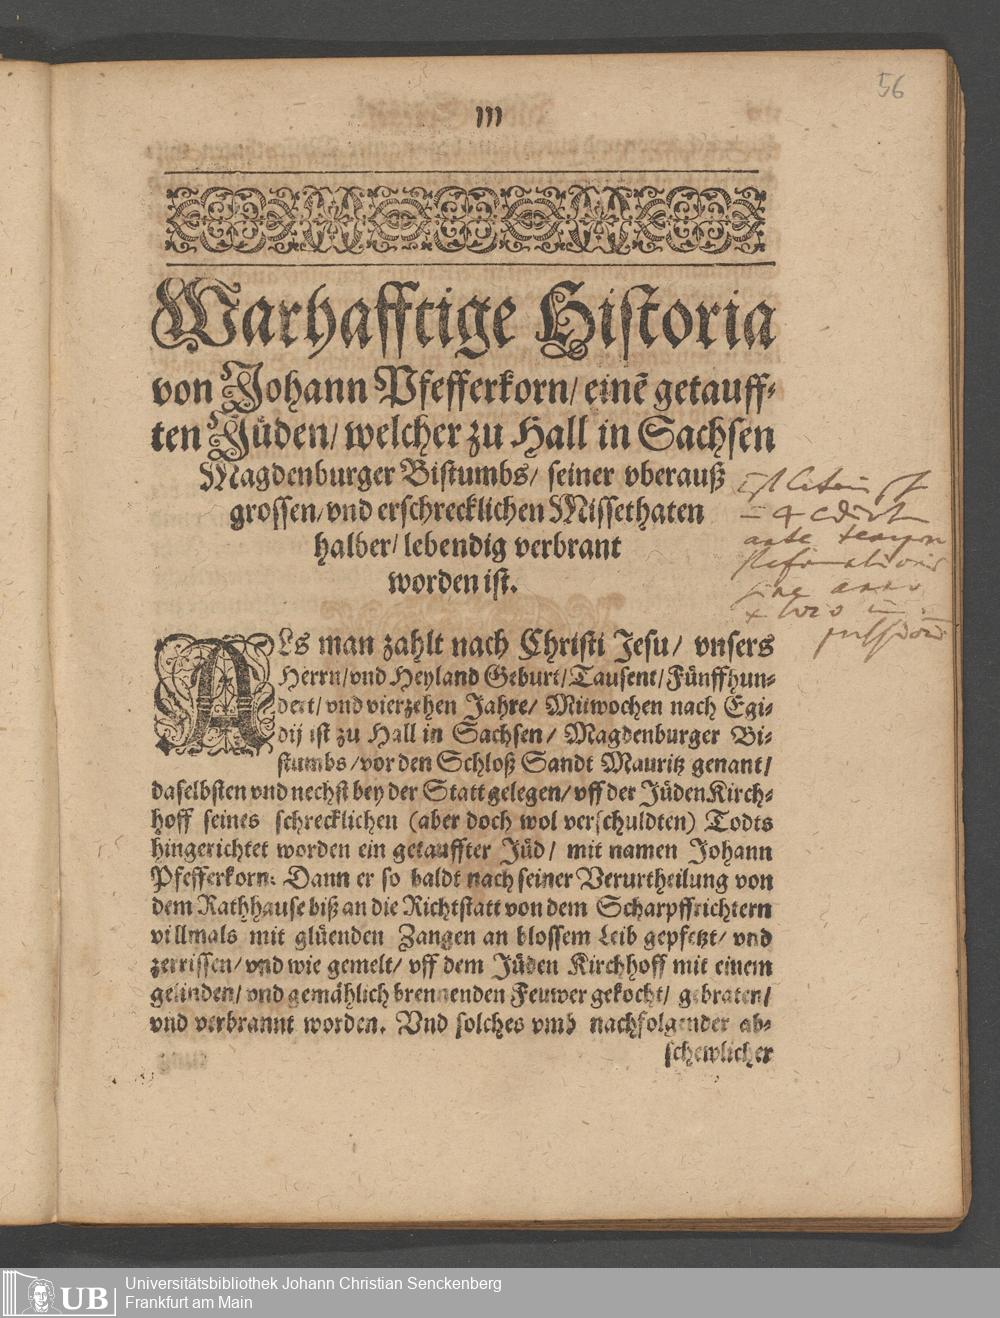 56
III
Warhafftige Historia
von Johann Pfefferkorn/ einē getauff-
ten Jüden/ welcher zu Hall in Sachsen
Magdenburger Bistumbs/ seiner vberauß
grossen/ vnd erschrecklichen Missethaten
halber/ lebendig verbrant
worden ist.
ALs man zahlt nach Christi Jesu/ vnsers
Herrn/ vnd Heyland Geburt/ Tausent/ Fünffhun-
dert/ vnd vierzehen Jahre/ Mitwochen nach Egi-
dij ist zu Hall in Sachsen/ Magdenburger Bi-
stumbs/ vor den Schloß Sandt Mauritz genant/
daselbsten vnd nechst bey der Statt gelegen/ vff der Jüden Kirch-
hoff seines schrecklichen (aber doch wol verschuldten) Todts
hingerichtet worden ein getauffter Jüd/ mit namen Johann
Pfefferkorn: Dann er so baldt nach seiner Verurtheilung von
dem Rathhause biß an die Richtstatt von dem Scharpffrichtern
villmals mit glüenden Zangen an blossem Leib gepfetzt/ vnd
zerrissen/ vnd wie gemelt/ vff dem Jüden Kirchhoff mit einem
gelinden/ vnd gemählich brennenden Feuwer gekocht/ gebraten/
vnd verbrannt worden. Vnd solches vmb nachfolgender ab-
schewlicher
ante
sine anno
UB
Universitätsbibliothek Johann Christian Senckenberg
Frankfurt am Main